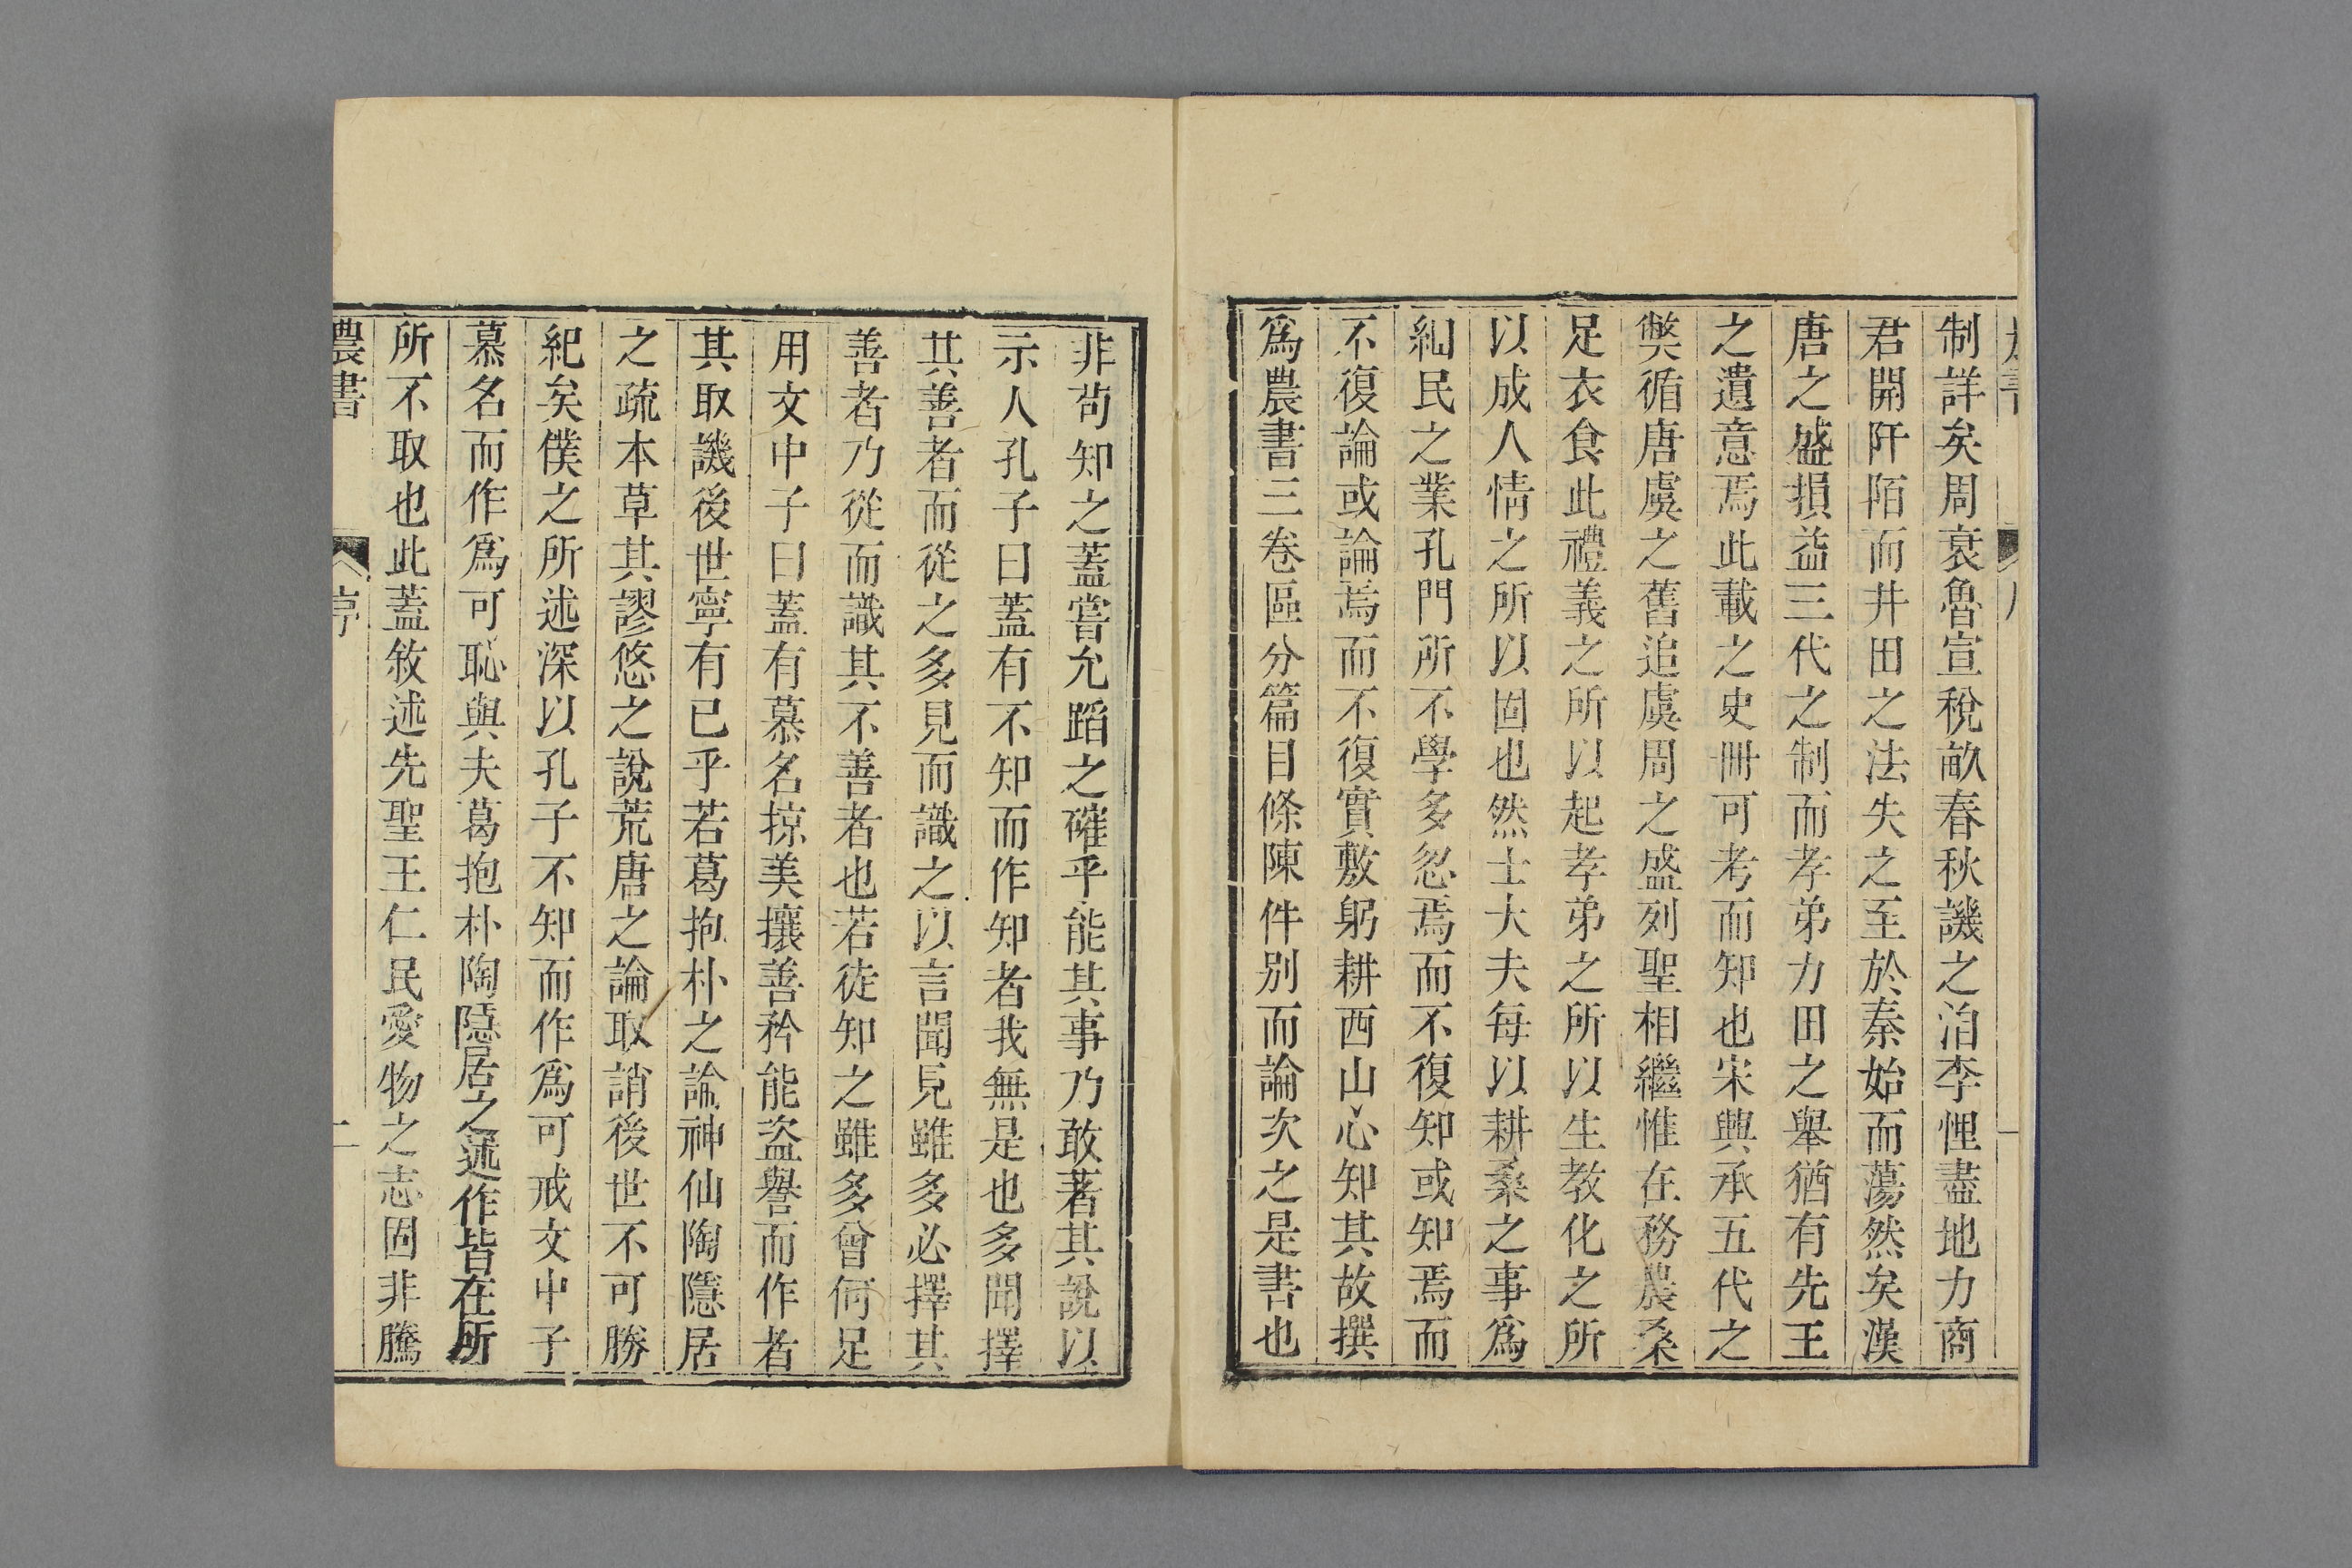 制詳矣周衰魯宣稅畝春秋譏之洎李悝盡地力商
君開阡陌而井田之法失之至於秦始而蕩然矣漢
唐之盛損益三代之制而孝弟力田之舉猶有先王
之遺意焉此載之史冊可考而知也宋興承五代之
獘循唐虞之舊追虞周之盛列聖相繼惟在務農桑
足衣食此禮義之所以起孝弟之所以生教化之所
以成人情之所以固也然士大夫每以耕桑之事為
細民之業孔門所不學多忽焉而不復知或知焉而
不復論或論焉而不復實敷躬耕西山心知其故撰
為農書三卷區分篇目條陳件別而論次之是書也
非苟知之蓋嘗允蹈之確乎能其事乃敢著其說以
示人孔子曰蓋有不知而作知者我無是也多聞擇
其善者而從之多見而識之以言聞見雖多必擇其
善者乃從而識其不善者也若徒知之雖多曾何足
用文中子曰蓋有慕名掠美攘善矜能盜譽而作者
其取譏後世寧有已乎若葛抱朴之論神仙陶隱居
之疏本草其謬悠之說荒唐之論取誚後世不可勝
紀矣僕之所述深以孔子不知而作為可戒文中子
慕名而作為可恥與夫葛抱朴陶隱居之述作皆在所
所不取也此蓋敘述先聖王仁民愛物之志固非騰
農書 序 二